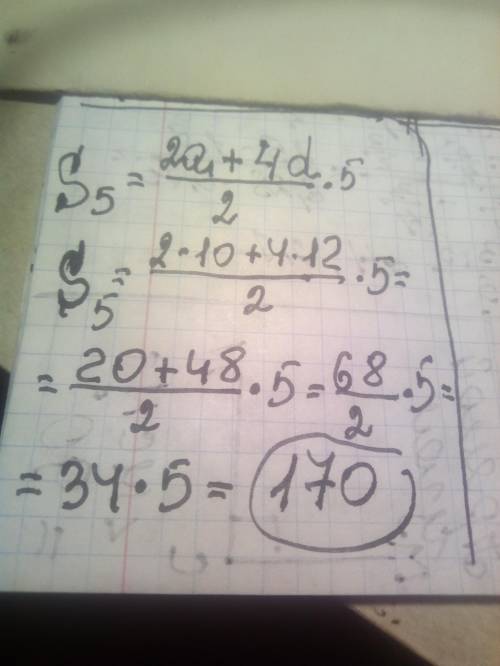 S₅ = (2a₁ + 4d)/2 · 5
S₅ = (2·10 + 4·12)/2 · 5 =
= (20 + 48)/2 · 5 = 68/2 · 5 =
= 34 · 5 = 170